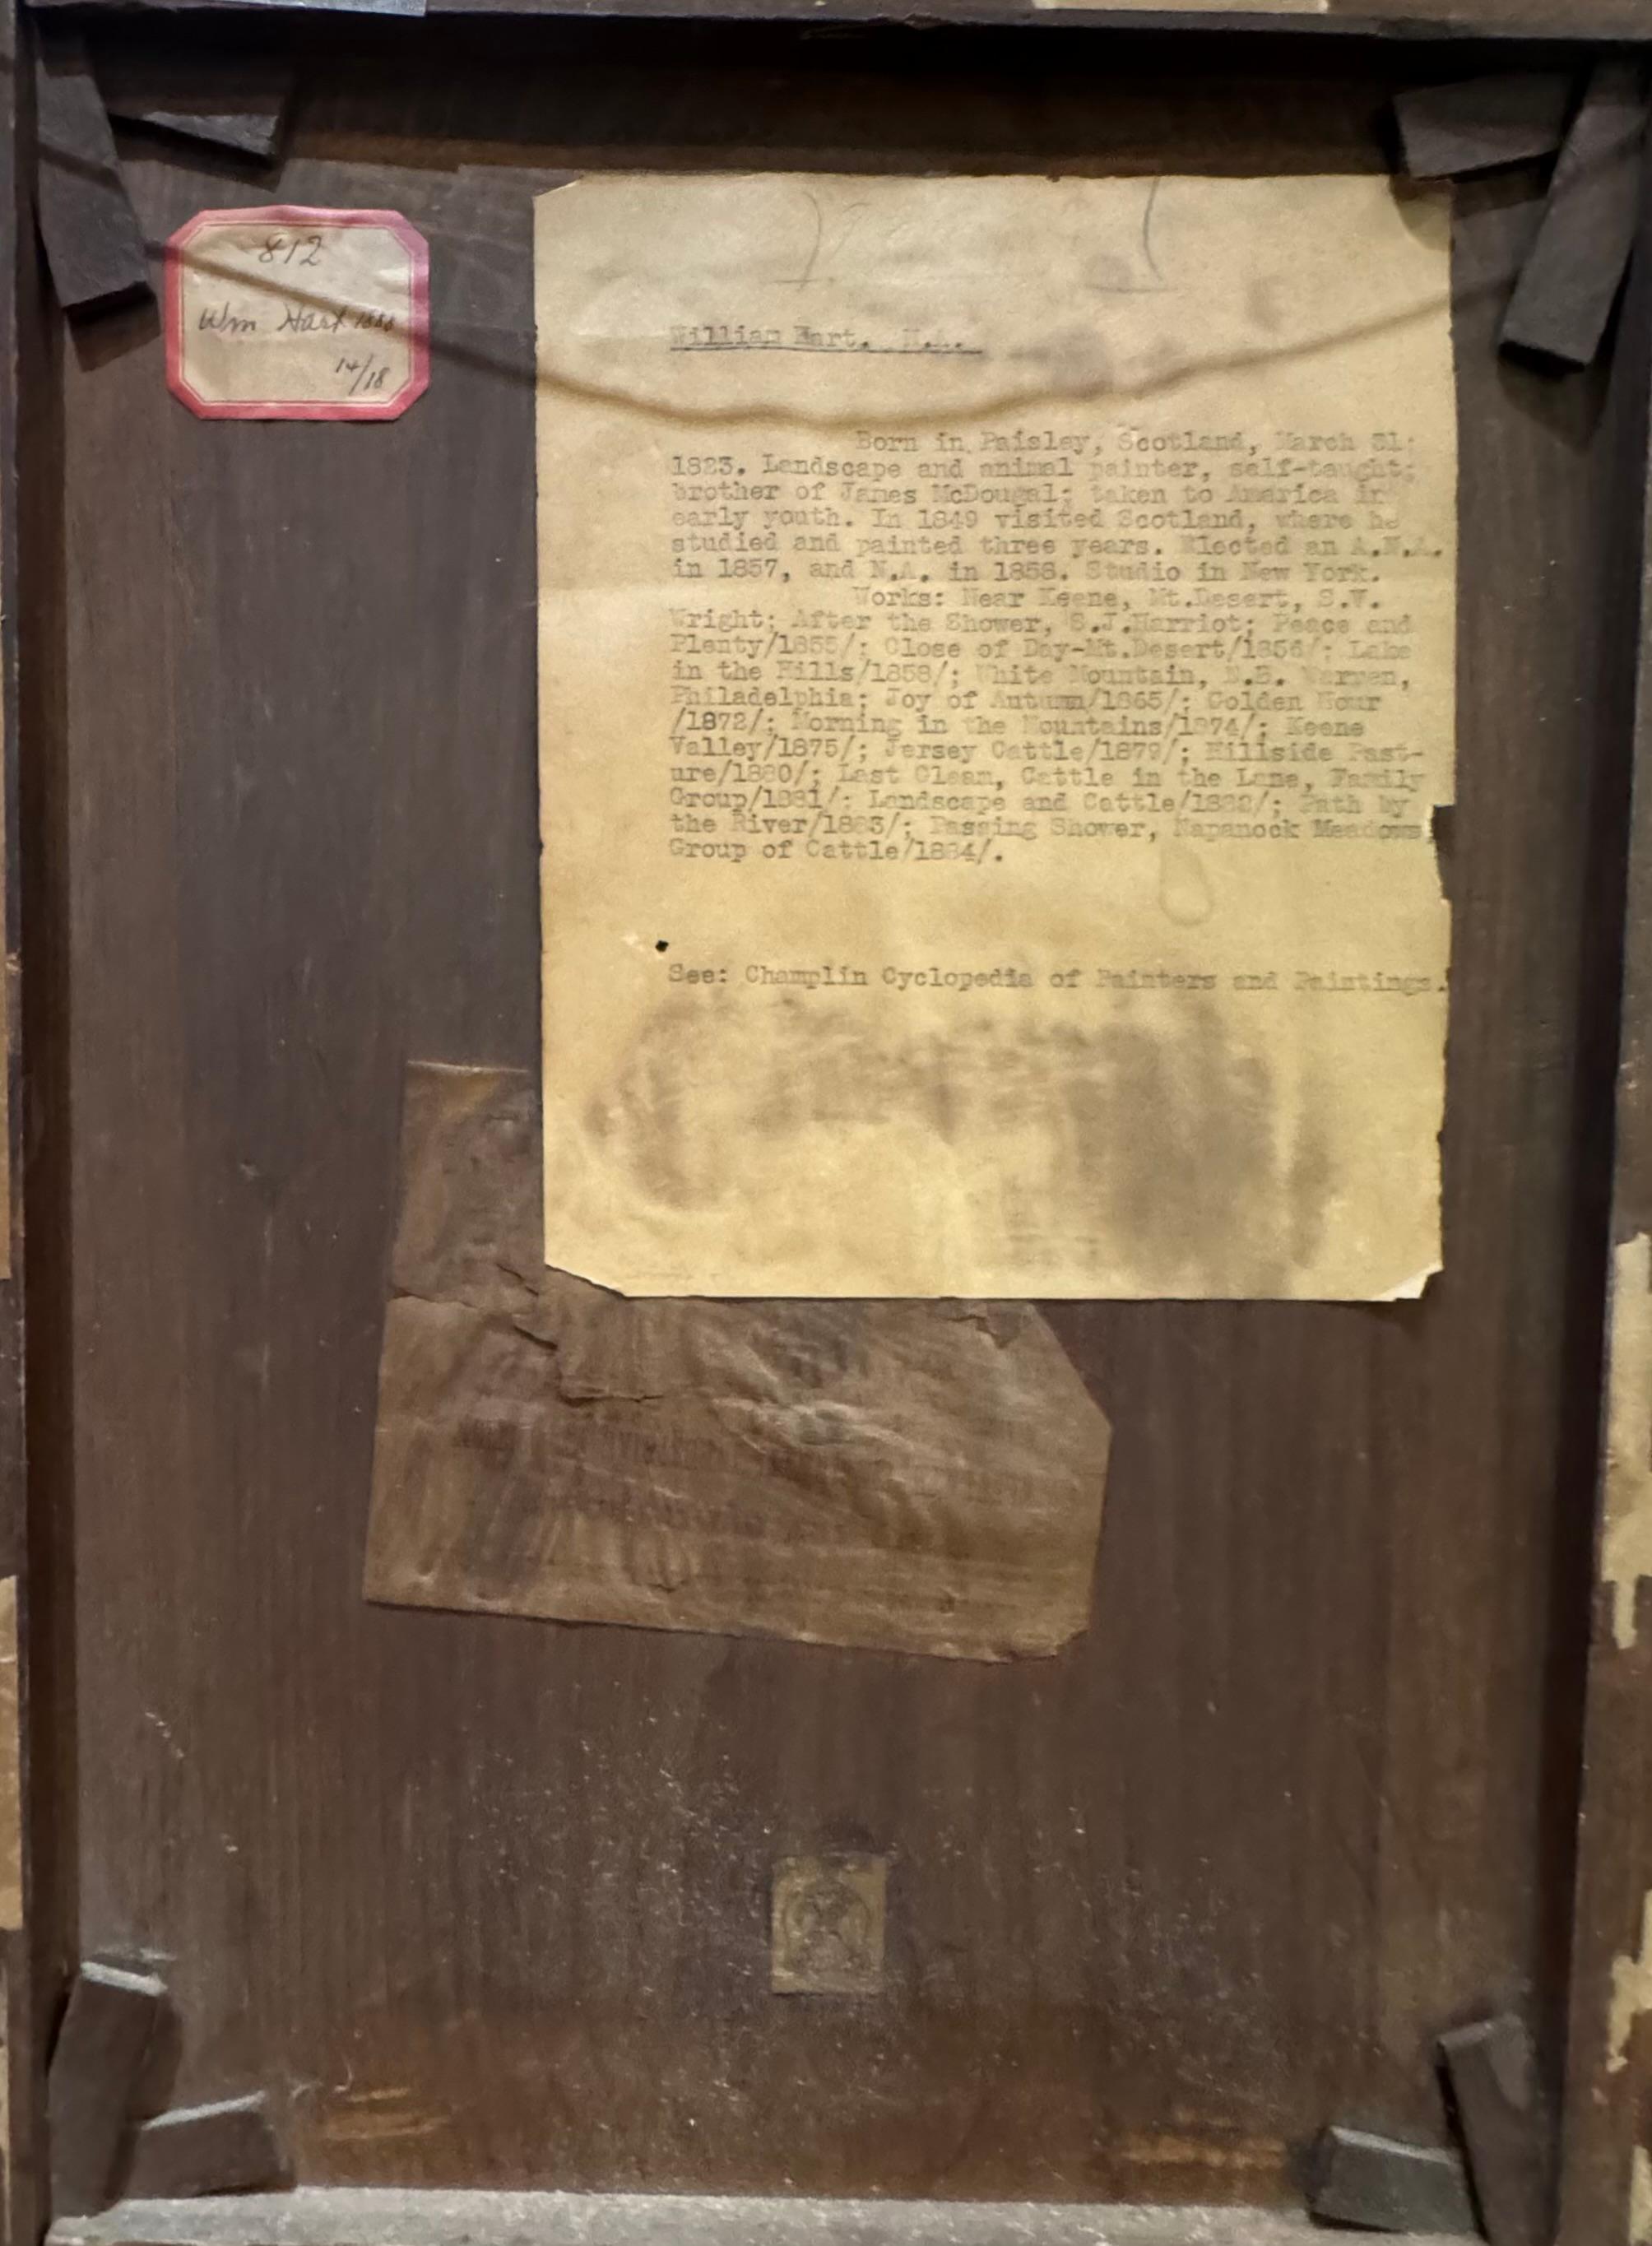 812
Wm Hart 1888
14/18
William Hart. N.A.
Born in Paisley, Scotland, March 31;
1823. Landscape and animal painter, self-taught;
brother of James McDougal; taken to America in
early youth. In 1849 visited Scotland, where he
studied and painted three years. Elected an A.N.A.
in 1857, and N.A. in 1858. Studio in New York.
Works: Near Keene, Mt.Desert, S.V.
Wright; After the Shower, S.J.Harriot; Peace and
Plenty/1855/; Close of Day-Mt.Desert/1856/; Lake
in the Hills/1858/; White Mountain, E.B. Warren,
Philadelphia; Joy of Autumn/1865/; Golden Hour
/1872/; Morning in the Mountains/1874/; Keene
Valley/1875/; Jersey Cattle/1879/; Hillside Past-
ure/1880/; Last Gleam, Cattle in the Lane, Family
Group/1881/; Landscape and Cattle/1882/; Path by
the River/1883/; Passing Shower, Napanock Meadows
Group of Cattle/1884/.
See: Champlin Cyclopedia of Painters and Paintings.